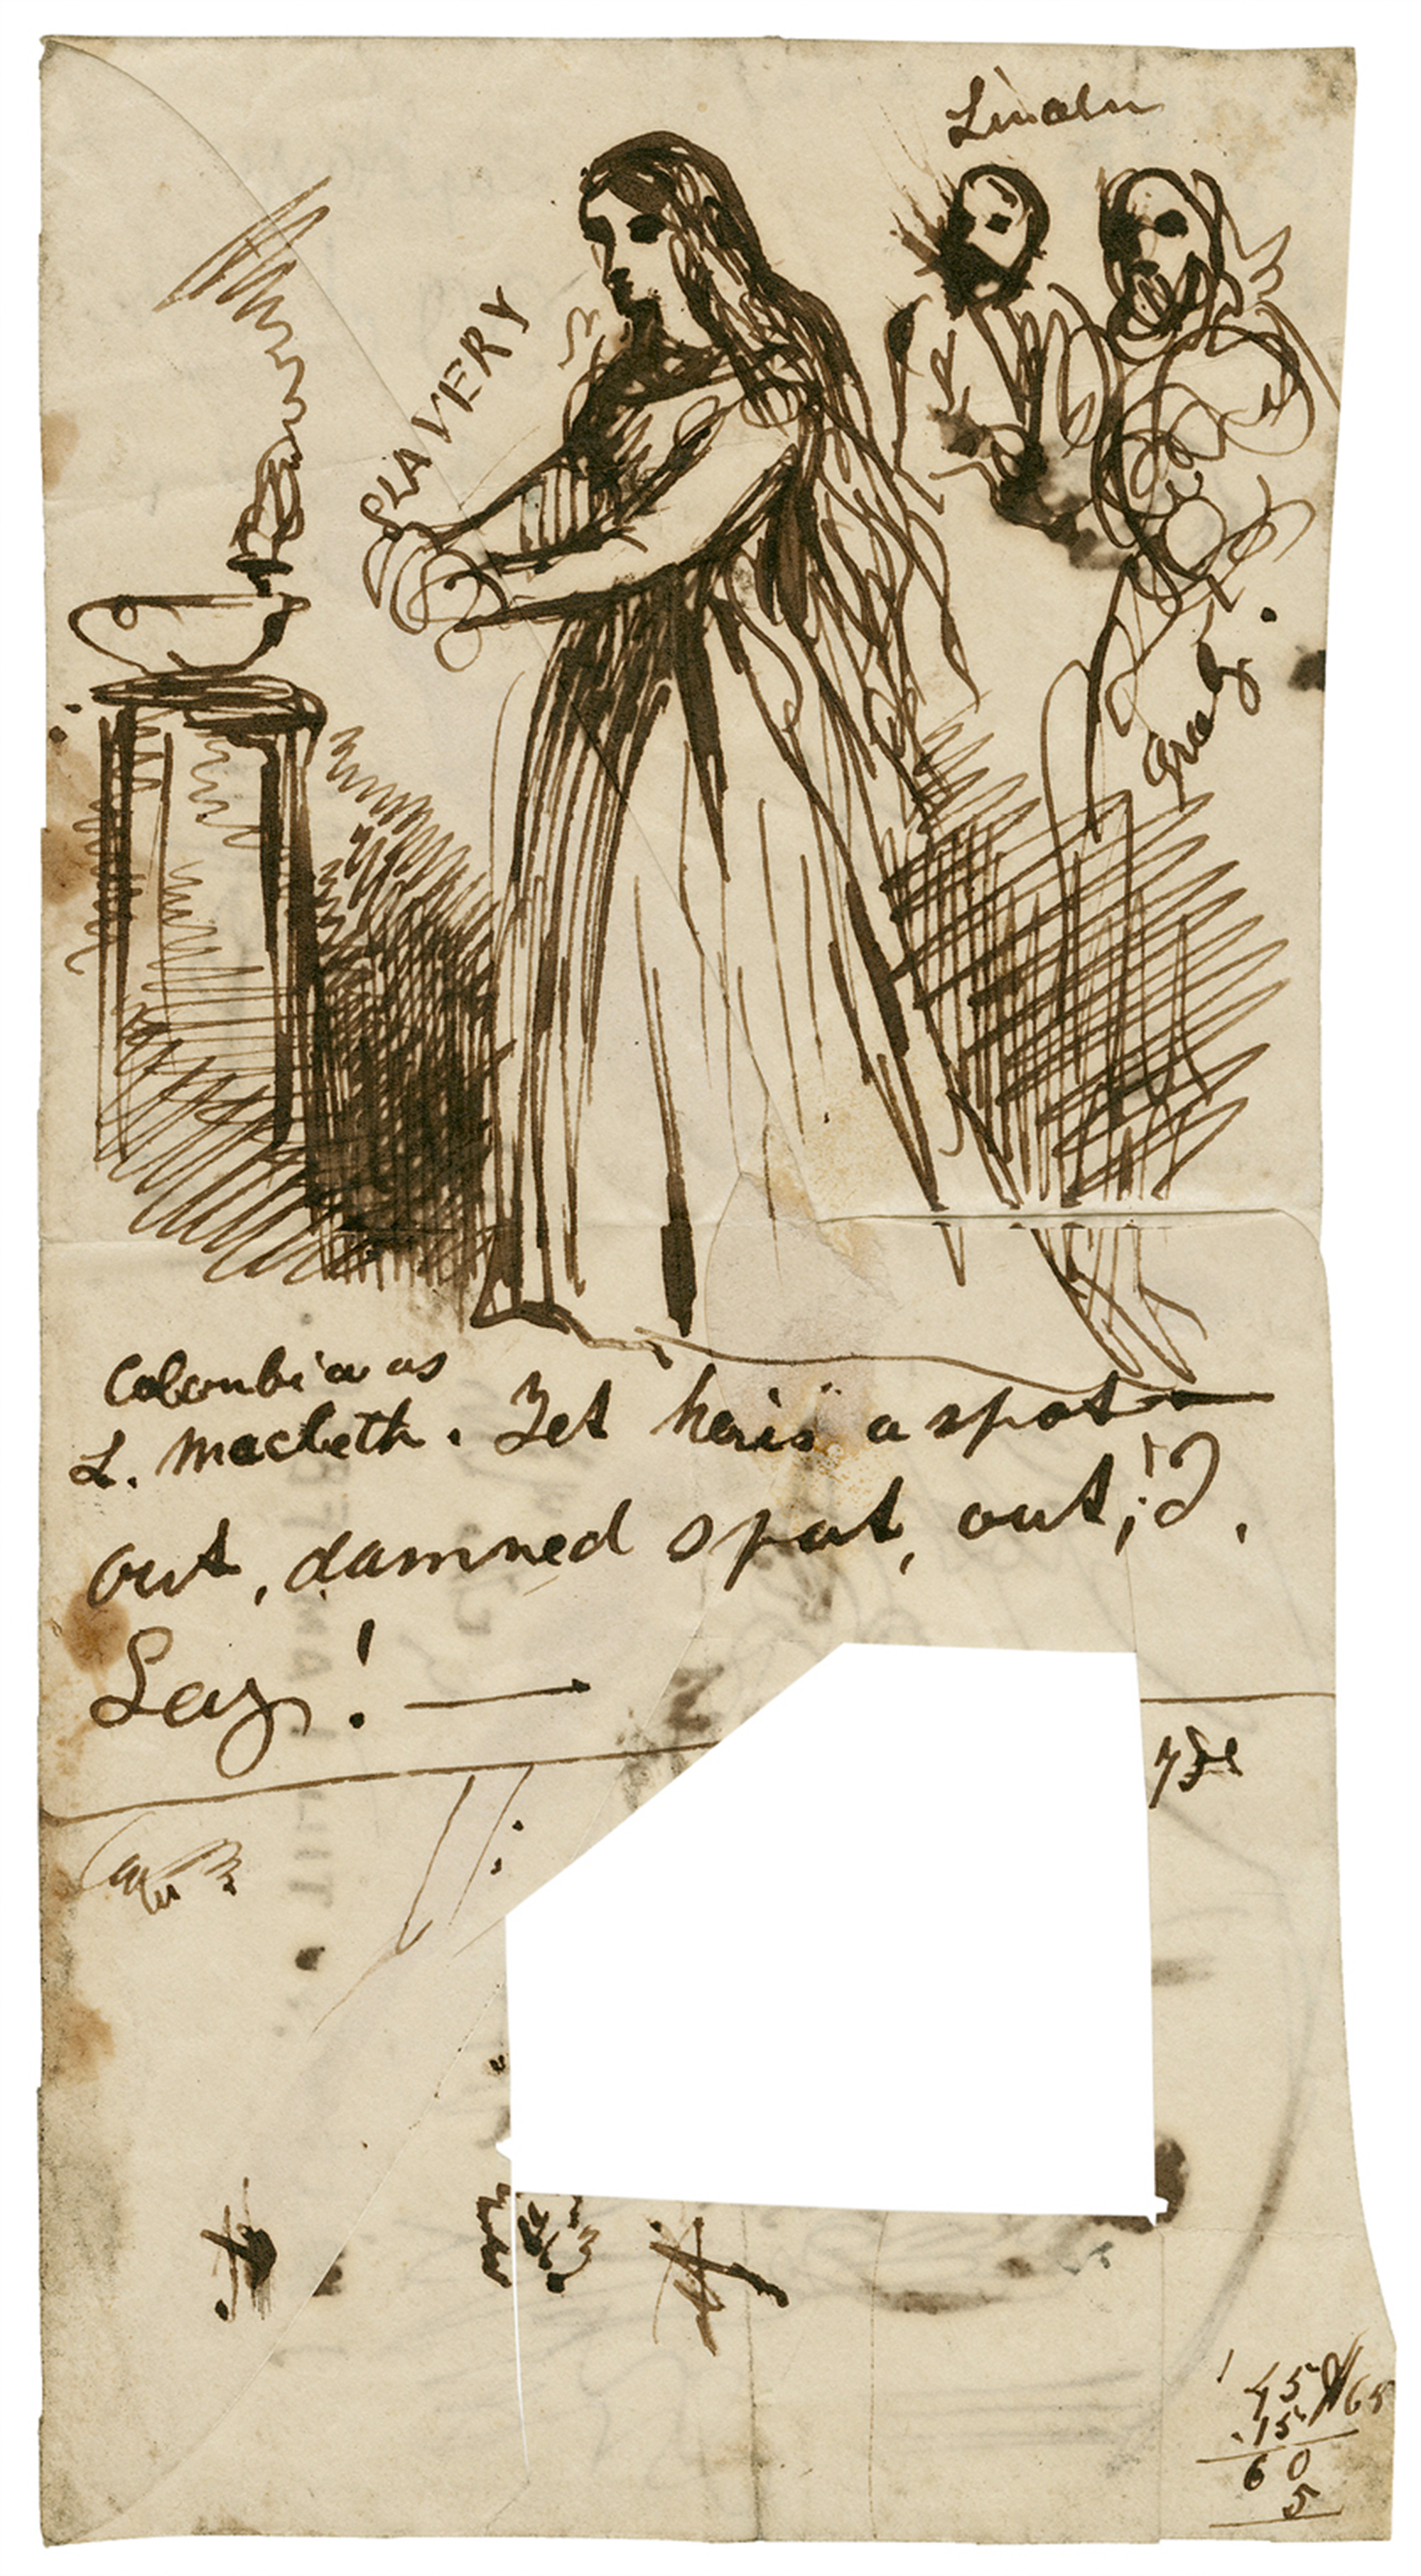 Lincoln
SLAVERY
Greely.
Colombia as
L. Macbeth. Yet here is a spot—
out, damned spot, out,!?.
Say! —
75
45 65
.15
60
5